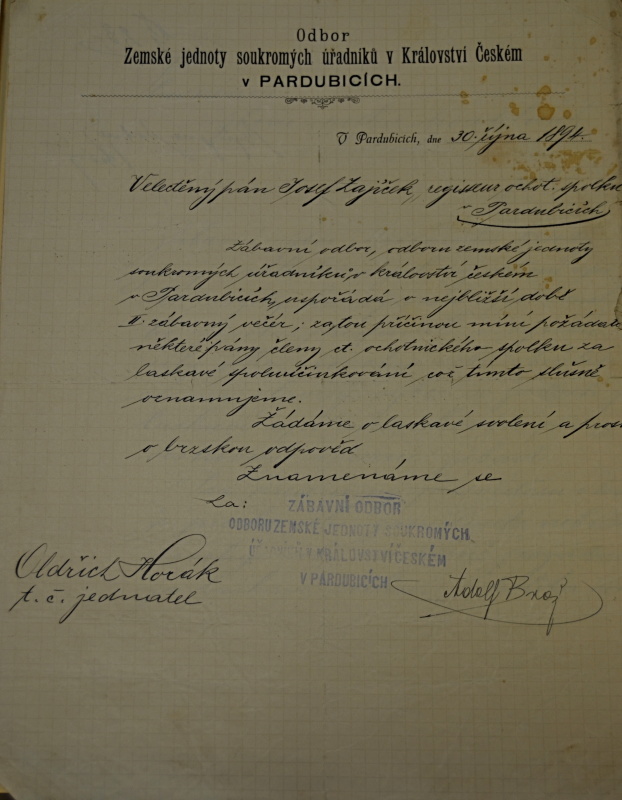 Odbor
Zemské jednoty soukromých úřadníků v Království Českém
v PARDUBICÍCH.
V Pardubicích, dne 30. října 1894.
Velectěný pán Josef Zajíček, regisseur ochot. spolku
v Pardubicích
Zábavní odbor, odboru zemské jednoty
soukromých úřadníků v království českém
v Pardubicích, uspořádá v nejbližší době
II. zábavný večer; za tou příčinou míní požádati
některé pány členy ct. ochotnického spolku za
laskavé spoluúčinkování což tímto slušně
oznamujeme.
Žádáme o laskavé svolení a prosí
o brzskou odpověd
Znamenáme se
Za:
ZÁBAVNÍ ODBOR
ODBORU ZEMSKÉ JEDNOTY SOUKROMÝCH
ÚŘADNÍKŮ V KRÁLOVSTVÍ ČESKÉM
V PARDUBICÍCH
Oldřich Horák
t. č. jednatel
Adolf Brož